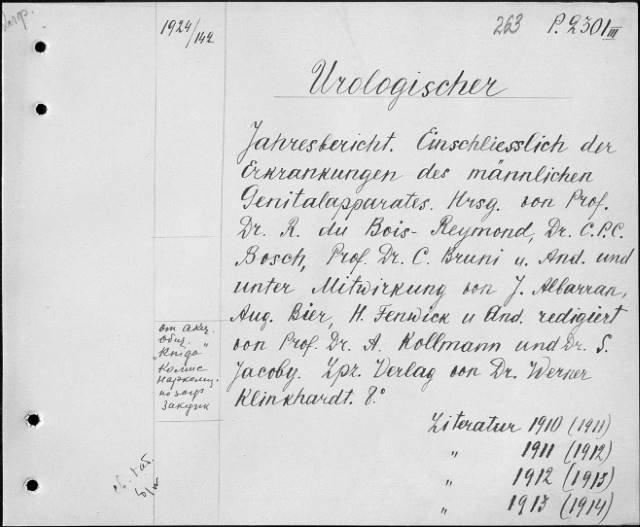 1924/142
263 P.2301 III
Urologischer
Jahresbericht. Einschliesslich der
Erkrankungen des männlichen
Genitalapparates. Hrsg. von Prof.
Dr. R. du Bois-Reymond, Dr. C.P.C.
Bosch, Prof. Dr. C. Bruni u. And. und
unter Mitwirkung von J. Albarran,
Aug. Bier, H. Fenwick u And. redigiert
von Prof. Dr. A. Kollmann und Dr. S.
Jacoby. Lpz. Verlag von Dr. Werner
Klinkhardt. 8.°
Literatur 1910 (1911)
" 1911 (1912)
" 1912 (1913)
" 1913 (1914)
от акц.
общ.
"Книга"
Комис
Наркомц.
по загр
закупк